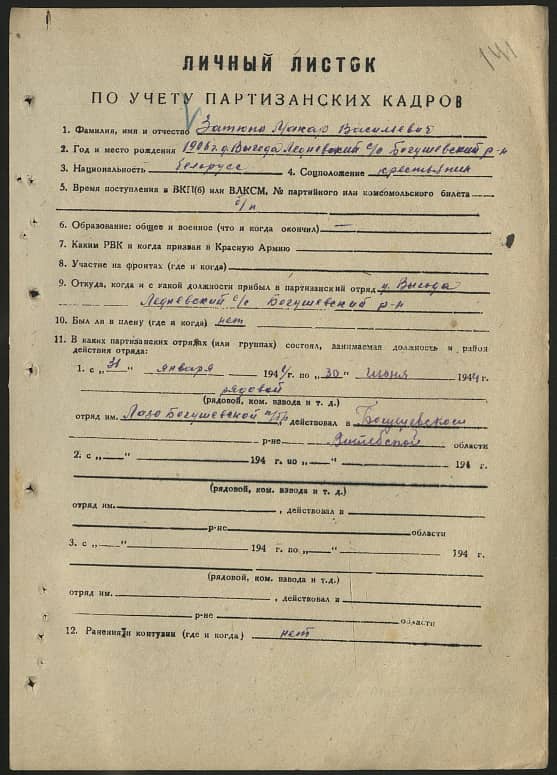 141
ЛИЧНЫЙ ЛИСТОК
ПО УЧЕТУ ПАРТИЗАНСКИХ КАДРОВ
1. Фамилия, имя и отчество Затюпо Макар Васильевич
2. Год и место рождения 1906 г. д. Выгода Ледневский с/с Богушевский р-н
3. Национальность белорусс 4. Соцположение крестьянин
5. Время поступления в ВКП(б) или ВЛКСМ, № партийного или комсомольского билета
б/п
6. Образование: общее и военное (что и когда окончил) —
7. Каким РВК и когда призван в Красную Армию
8. Участие на фронтах (где и когда)
9. Откуда, когда и с какой должности прибыл в партизанский отряд д. Выгода
Ледневский с/с Богушевский р-н
10. Был ли в плену (где и когда) нет
11. В каких партизанских отрядах (или группах) состоял, занимаемая должность и район
действия отряда:
1. с „31" января 1944 г. по „30" июня 1944 г.
рядовой
(рядовой, ком. взвода и т. д.)
отряд им. Лазо Богушевской п/бр, действовал в Богушевском
р-не Витебской области
2. с „—" 194 г. по „—" 194 г.
(рядовой, ком. взвода и т. д.)
отряд им. , действовал в
р-не области
3. с „—" 194 г. по „—" 194 г.
(рядовой, ком. взвода и т.д.)
отряд им. , действовал в
р-не области
12. Ранения и контузии (где и когда) нет